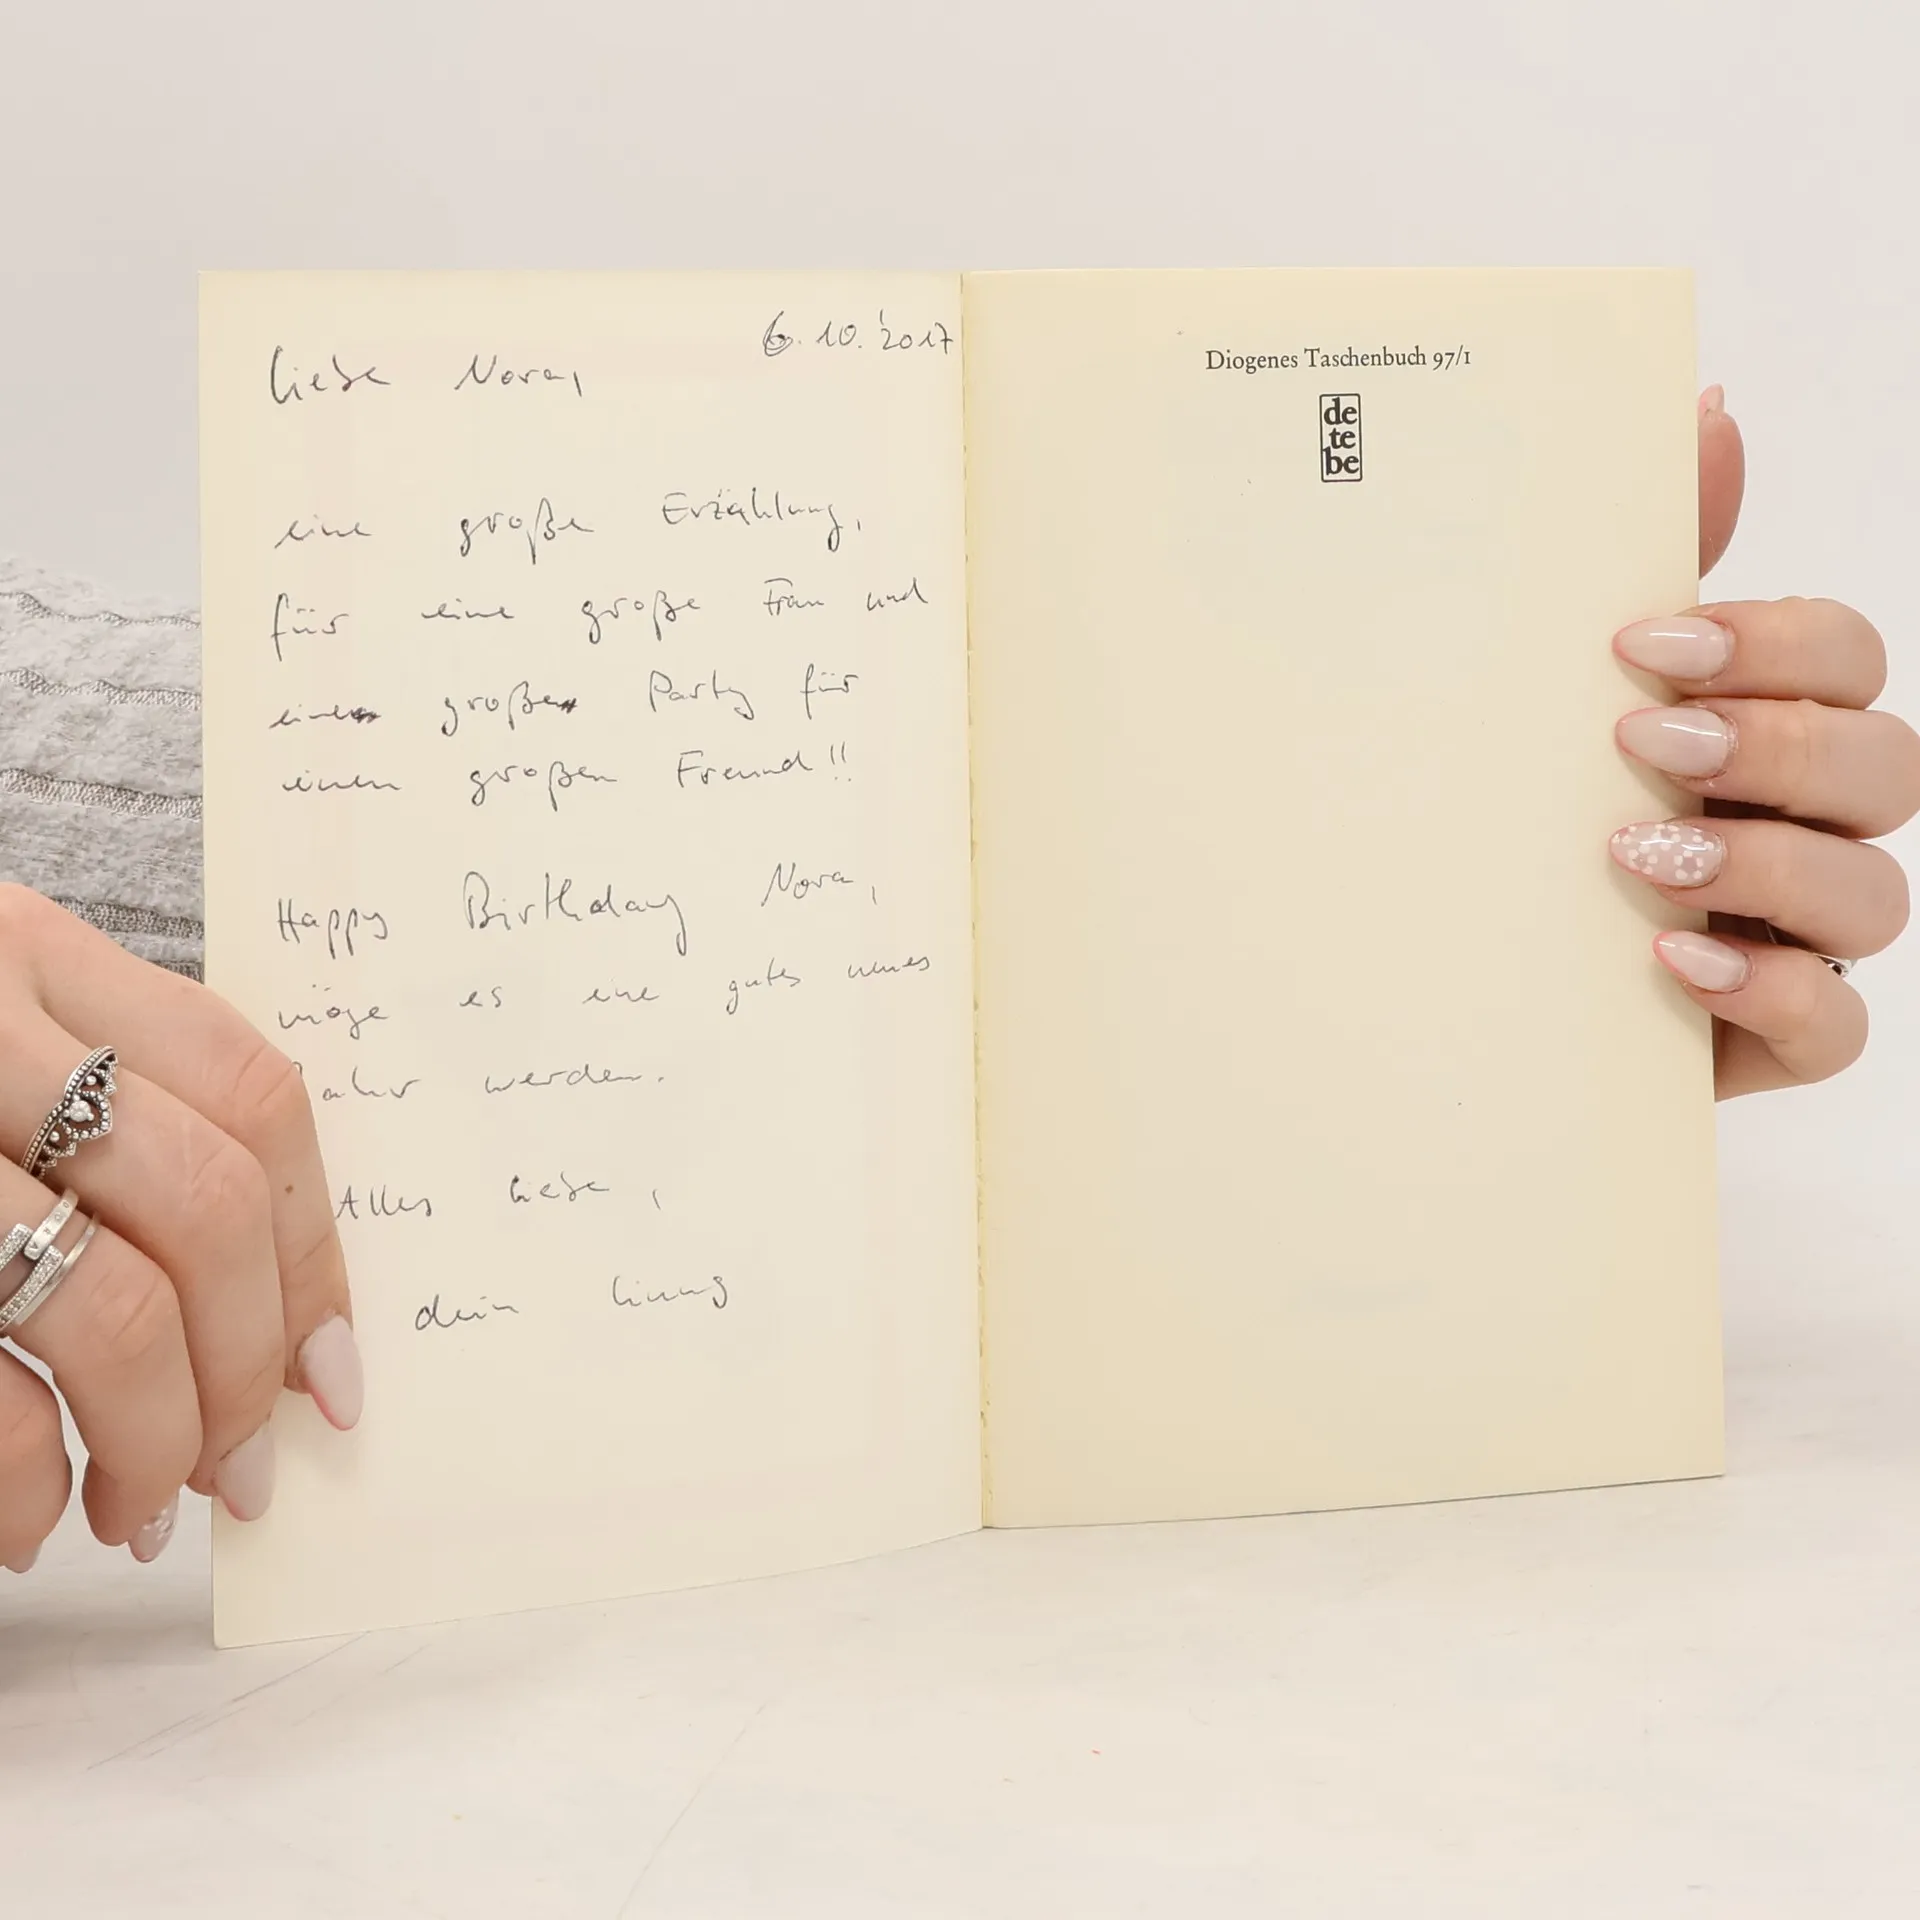 6.10.'2017
Liebe Nora,
eine große Erzählung,
für eine große Frau und
eine große Party für
einen großen Freund!!
Happy Birthday Nora,
möge es ein gutes neues
Jahr werden.
Alles Liebe,
dein
Diogenes Taschenbuch 97/1
de
te
be